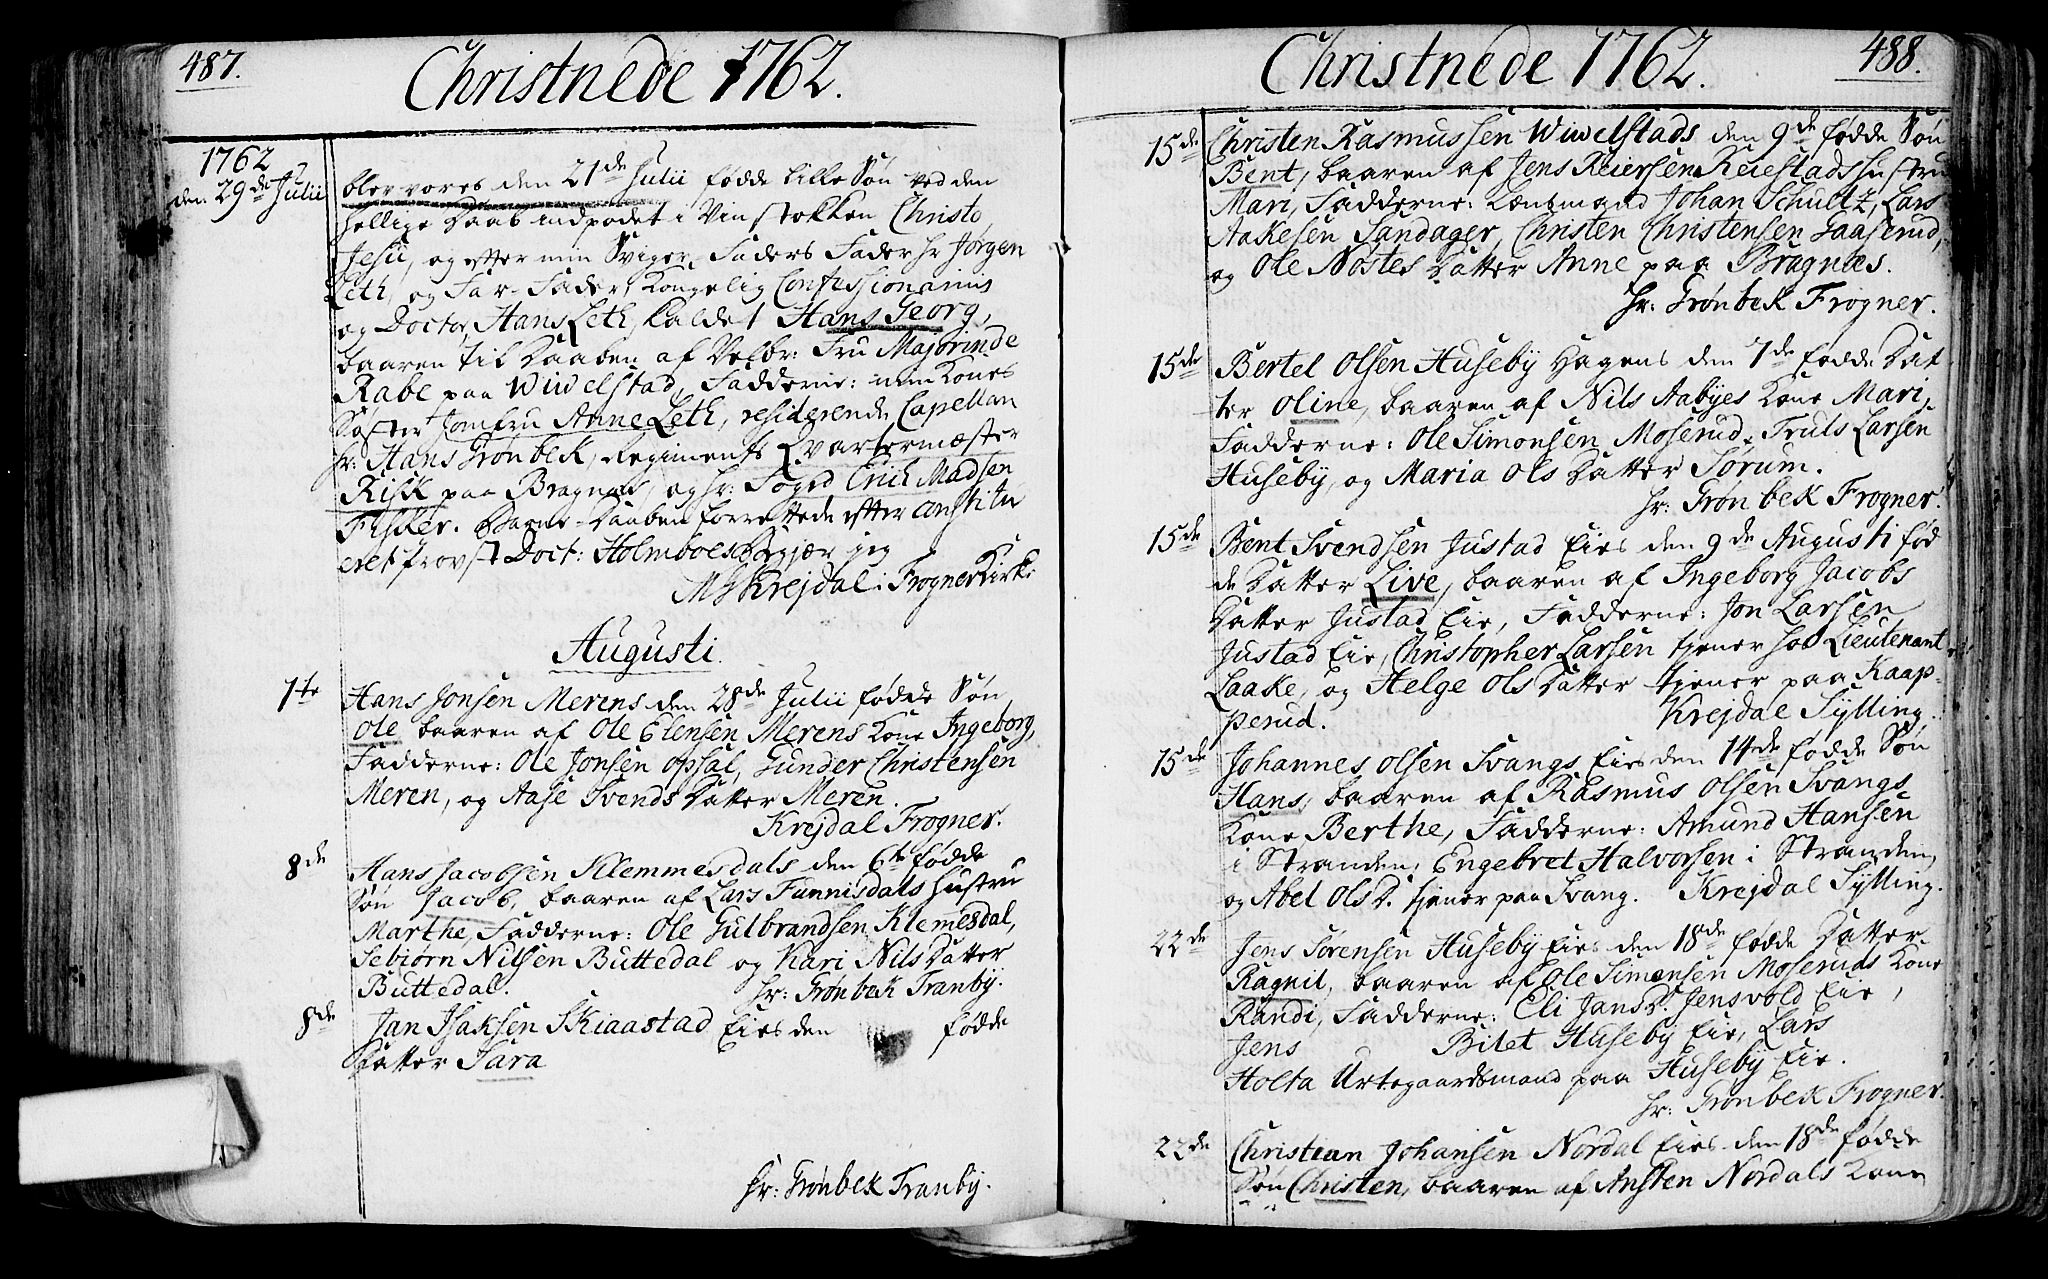 487.
Christnede 1762.
1762
den 29de Julii
blev vores den 21de Julii fødde lille Søn ved den
hellige Daab indpodet i Vinstokken Christo
Jesu, og efter min Sviger Faders Fader hr Jørgen
Leth, og Far-Fader, Kongelig Confessionarius
og Doctor Hans Leth, kaldet Hans Georg,
baaren til Daaben af Velbr: Fru Majorinde
Rabe paa Wiwelstad, Fadderne: min Kones
Søster Jomfru Anne Leth, residerende Capellan
hr: Hans Grønbek, Regiments Qvartermæster
Risk paa Bragnæs, og hr: Foged Erich Madsen
Fisker. Barne-Daaben forrettede efter constitu
eret Provst Doct: Holmboes Begjær jeg
MS Krejdal i Frogner Kirke
Augusti.
1te
Hans Jonsen Merens den 28de Julii fødde Søn
Ole baaren af Ole Elensen Merens Kone Ingeborg,
Fadderne: Ole Jonsen Opsal, Gunder Christensen
Meren, og Aase Svends Datter Meren.
Krejdal Frogner.
8de
Hans Jacobsen Klemmesdals den 6te fødde
Søn Jacob, baaren af Lars Funnisdals Hustru
Marthe, Fadderne: Ole Gulbrandsen Klemesdal,
Sebiørn Nilsen Buttedal og Kari Nils Datter
Buttedal.
hr: Grønbek Tranby.
8de
Jan Isaksen Skiaastad Eies den fødde
Datter Sara
hr: Grønbek Tranby.
Christnede 1762.
488.
15de
Christen Rasmussen Wiwelstads den 9de fødde Søn
Bent, baaren af Jens Reiersen Reiestads Hustru
Mari, Fadderne: Lænsmand Johan Schultz, Lars
Aakesen Sandager, Christen Christensen Gaaserud,
og Ole Nostes Datter Anne paa Bragnæs.
hr: Grønbek Frogner.
15de
Bertel Olsen Huseby Hagens den 7de fødde Dat
ter Oline, baaren af Nils Aabyes Kone Mari,
Fadderne: Ole Simonsen Moserud, Truls Larsen
Huseby, og Maria Ols Datter Sørum.
hr: Grønbek Frogner.
15de
Bent Svendsen Justad Eies den 9de Augusti fød
de Datter Live, baaren af Ingeborg Jacobs
Datter Justad Eie, Fadderne: Jon Larsen
Justad Eie, Christopher Larsen tjener hos Lieutenant
Laake, og Helge Ols Datter tjener paa Kaap-
perud.
Krejdal Sylling.
15de
Johannes Olsen Svangs Eies den 14de fødde Søn
Hans, baaren af Rasmus Olsen Svangs
Kone Berthe, Fadderne: Amund Hansen
i Stranden, Engebret Halvorsen i Stranden,
og Abel Ols D. tjener paa Svang. Krejdal Sylling.
22de
Jens Sørensen Huseby Eies den 18de fødde Datter
Ragnil, baaren af Ole Simensen Moseruds Kone
Randi, Fadderne: Eli Jans D. Jensvold Eie,
Jens Bilet Huseby Eie, Lars
Holta Urtegaardsmand paa Huseby Eie.
hr: Grønbek Frogner.
22de
Christian Johansen Nordal Eies den 18de fødde
Søn Christen, baaren af Ansten Nordals Kone